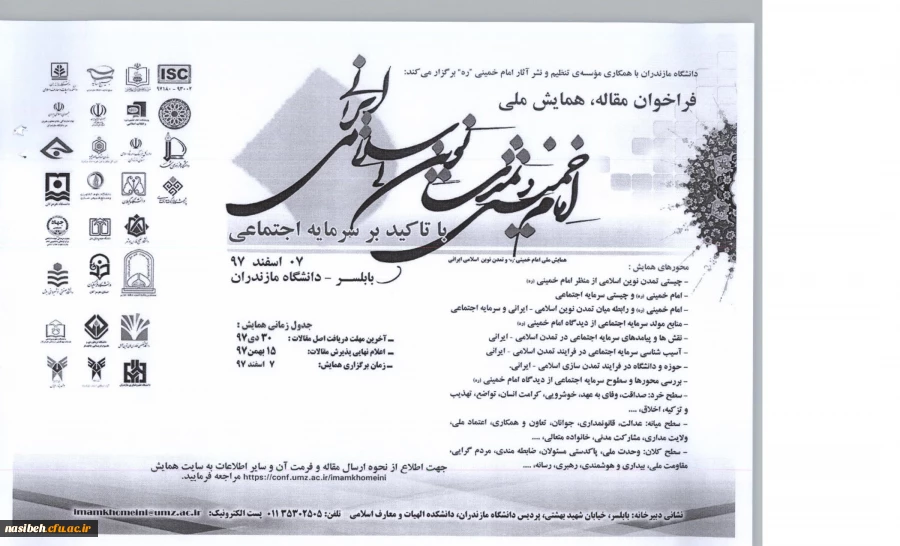 دانشگاه مازندران با همکاری مؤسسه‌ی تنظیم و نشر آثار امام خمینی "ره" برگزار می‌کند:
فراخوان مقاله، همایش ملی
امام خمینی و تمدن نوین اسلامی ایرانی
با تاکید بر سرمایه اجتماعی
همایش ملی امام خمینی (ره) و تمدن نوین اسلامی ایرانی
۰۷ اسفند ۹۷
بابلسر - دانشگاه مازندران
محورهای همایش :
- چیستی تمدن نوین اسلامی از منظر امام خمینی (ره)
- امام خمینی (ره) و چیستی سرمایه اجتماعی
- امام خمینی (ره) و رابطه میان تمدن نوین اسلامی - ایرانی و سرمایه اجتماعی
- منابع مولد سرمایه اجتماعی از دیدگاه امام خمینی (ره)
- نقش ها و پیامدهای سرمایه اجتماعی در تمدن اسلامی - ایرانی
- آسیب شناسی سرمایه اجتماعی در فرایند تمدن اسلامی - ایرانی
- حوزه و دانشگاه در فرایند تمدن سازی اسلامی - ایرانی.
- بررسی محورها و سطوح سرمایه اجتماعی از دیدگاه امام خمینی (ره)
- سطح خرد: صداقت، وفای به عهد، خوشرویی، کرامت انسان، تواضع، تهذیب
و تزکیه، اخلاق، ....
- سطح میانه: عدالت، قانونمداری، جوانان، تعاون و همکاری، اعتماد ملی،
ولایت مداری، مشارکت مدنی، خانواده متعالی، ....
- سطح کلان: وحدت ملی، پاکدستی مسئولان، ضابطه مندی، مردم گرایی،
مقاومت ملی، بیداری و هوشمندی، رهبری، رسانه، ....
جدول زمانی همایش :
- آخرین مهلت دریافت اصل مقالات : ۳۰ دی ۹۷
- اعلام نهایی پذیرش مقالات: ۱۵ بهمن ۹۷
- زمان برگزاری همایش: ۷ اسفند ۹۷
ISC
۹۷۱۸۰ - ۹۳۰۰۲
جهت اطلاع از نحوه ارسال مقاله و فرمت آن و سایر اطلاعات به سایت همایش
https://conf.umz.ac.ir/imamkhomeini مراجعه فرمایید.
نشانی دبیرخانه: بابلسر، خیابان شهید بهشتی، پردیس دانشگاه مازندران، دانشکده الهیات و معارف اسلامی تلفن: ۰۱۱۳۵۳۰۲۵۰۵ پست الکترونیک: imamkhomeini@umz.ac.ir
nasibeh.cfu.ac.ir